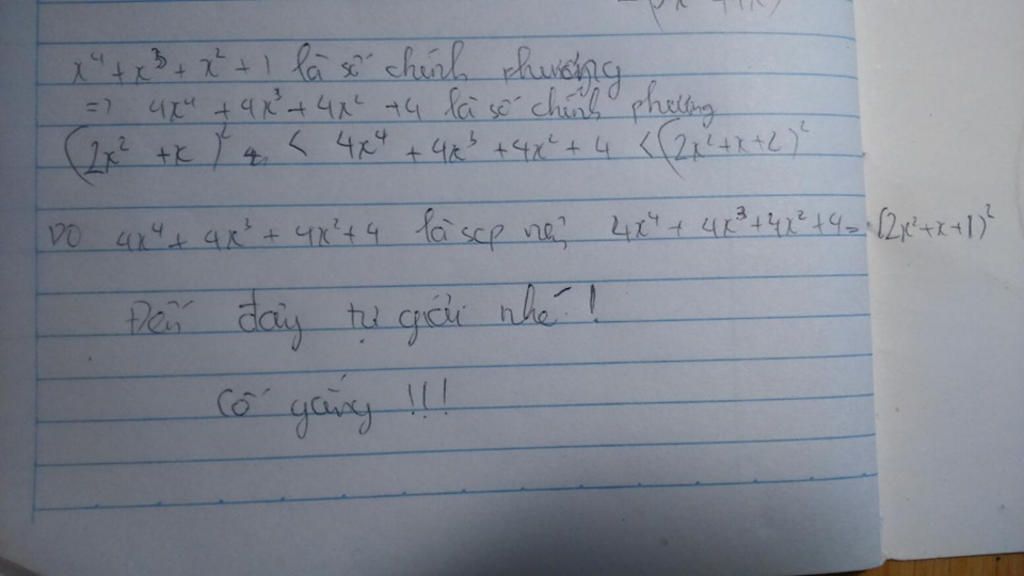 x⁴ + x³ + x² + 1 là số chính phương
=> 4x⁴ + 4x³ + 4x² + 4 là số chính phương
(2x² + x)² < 4x⁴ + 4x³ + 4x² + 4 < (2x² + x + 2)²
Do 4x⁴ + 4x³ + 4x² + 4 là scp nên 4x⁴ + 4x³ + 4x² + 4 = (2x² + x + 1)²
Đến đây tự giải nhé !
Cố gắng !!!